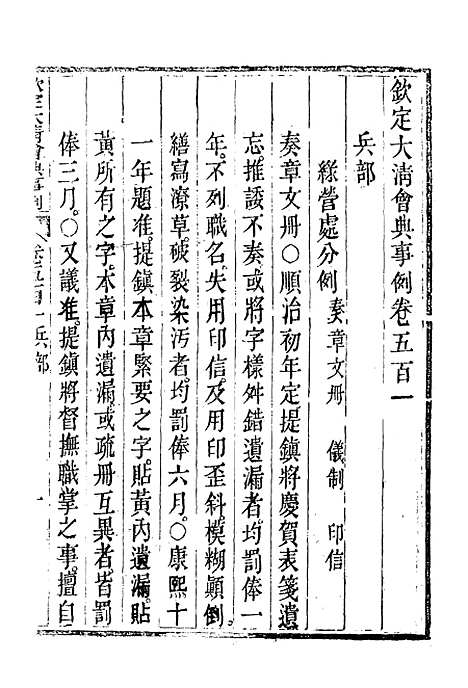 欽定大清會典事例卷五百一
兵部
綠營處分例 奏章文册 儀制 印信
奏章文册○順治初年定提鎮將慶賀表箋遺
忘推諉不奏或將字樣舛錯遺漏者均罰俸一
年不列職名失用印信及用印歪斜模糊顛倒
繕寫潦草破裂染汚者均罰俸六月○康熙十
一年題准提鎮本章緊要之字貼黃內遺漏貼
黃所有之字本章內遺漏或疏册互異者皆罰
俸三月○又議准提鎮將督撫職掌之事擅自
欽定大清會典事例 卷五百一 兵部 一